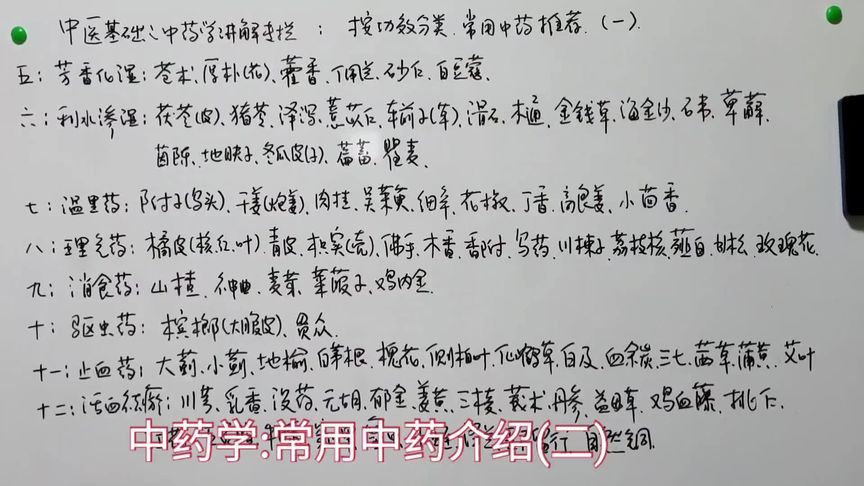 中医基础、中药学讲解专栏：按功效分类.常用中药推荐.(一)
五：芳香化湿：苍术、厚朴(花)、藿香、佩兰、砂仁、白豆蔻、
六：利水渗湿：茯苓(皮)、猪苓、泽泻、薏苡仁、车前子(草)、滑石、木通、金钱草、海金沙、石韦、萆薢、
茵陈、地肤子、冬瓜皮(子)、萹蓄、瞿麦、
七：温里药：附子(乌头)、干姜(炮姜)、肉桂、吴茱萸、细辛、花椒、丁香、高良姜、小茴香.
八：理气药：橘皮(核、红、叶)、青皮、枳实(壳)、佛手、木香、香附、乌药、川楝子、荔枝核、薤白、玫瑰花.
九：消食药：山楂、神曲、麦芽、莱菔子、鸡内金.
十：驱虫药：槟榔(大腹皮)、贯众.
十一：止血药：大蓟、小蓟、地榆、白茅根、槐花、侧柏叶、仙鹤草、白及、血余炭、三七、茜草、蒲黄、艾叶
十二：活血祛瘀：川芎、乳香、没药、元胡、郁金、姜黄、三棱、莪术、丹参、益母草、鸡血藤、桃仁、
自然铜.
中药学:常用中药介绍(二)